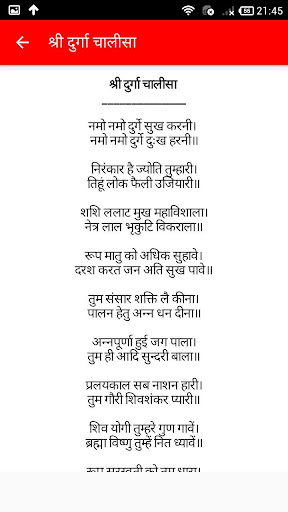 21:45
श्री दुर्गा चालीसा
श्री दुर्गा चालीसा
______________
नमो नमो दुर्गे सुख करनी।
नमो नमो दुर्गे दुःख हरनी॥
निरंकार है ज्योति तुम्हारी।
तिहूं लोक फैली उजियारी॥
शशि ललाट मुख महाविशाला।
नेत्र लाल भृकुटि विकराला॥
रूप मातु को अधिक सुहावे।
दरश करत जन अति सुख पावे॥
तुम संसार शक्ति लै कीना।
पालन हेतु अन्न धन दीना॥
अन्नपूर्णा हुई जग पाला।
तुम ही आदि सुन्दरी बाला॥
प्रलयकाल सब नाशन हारी।
तुम गौरी शिवशंकर प्यारी॥
शिव योगी तुम्हरे गुण गावें।
ब्रह्मा विष्णु तुम्हें नित ध्यावें॥
रूप सरस्वती को तुम धारा।